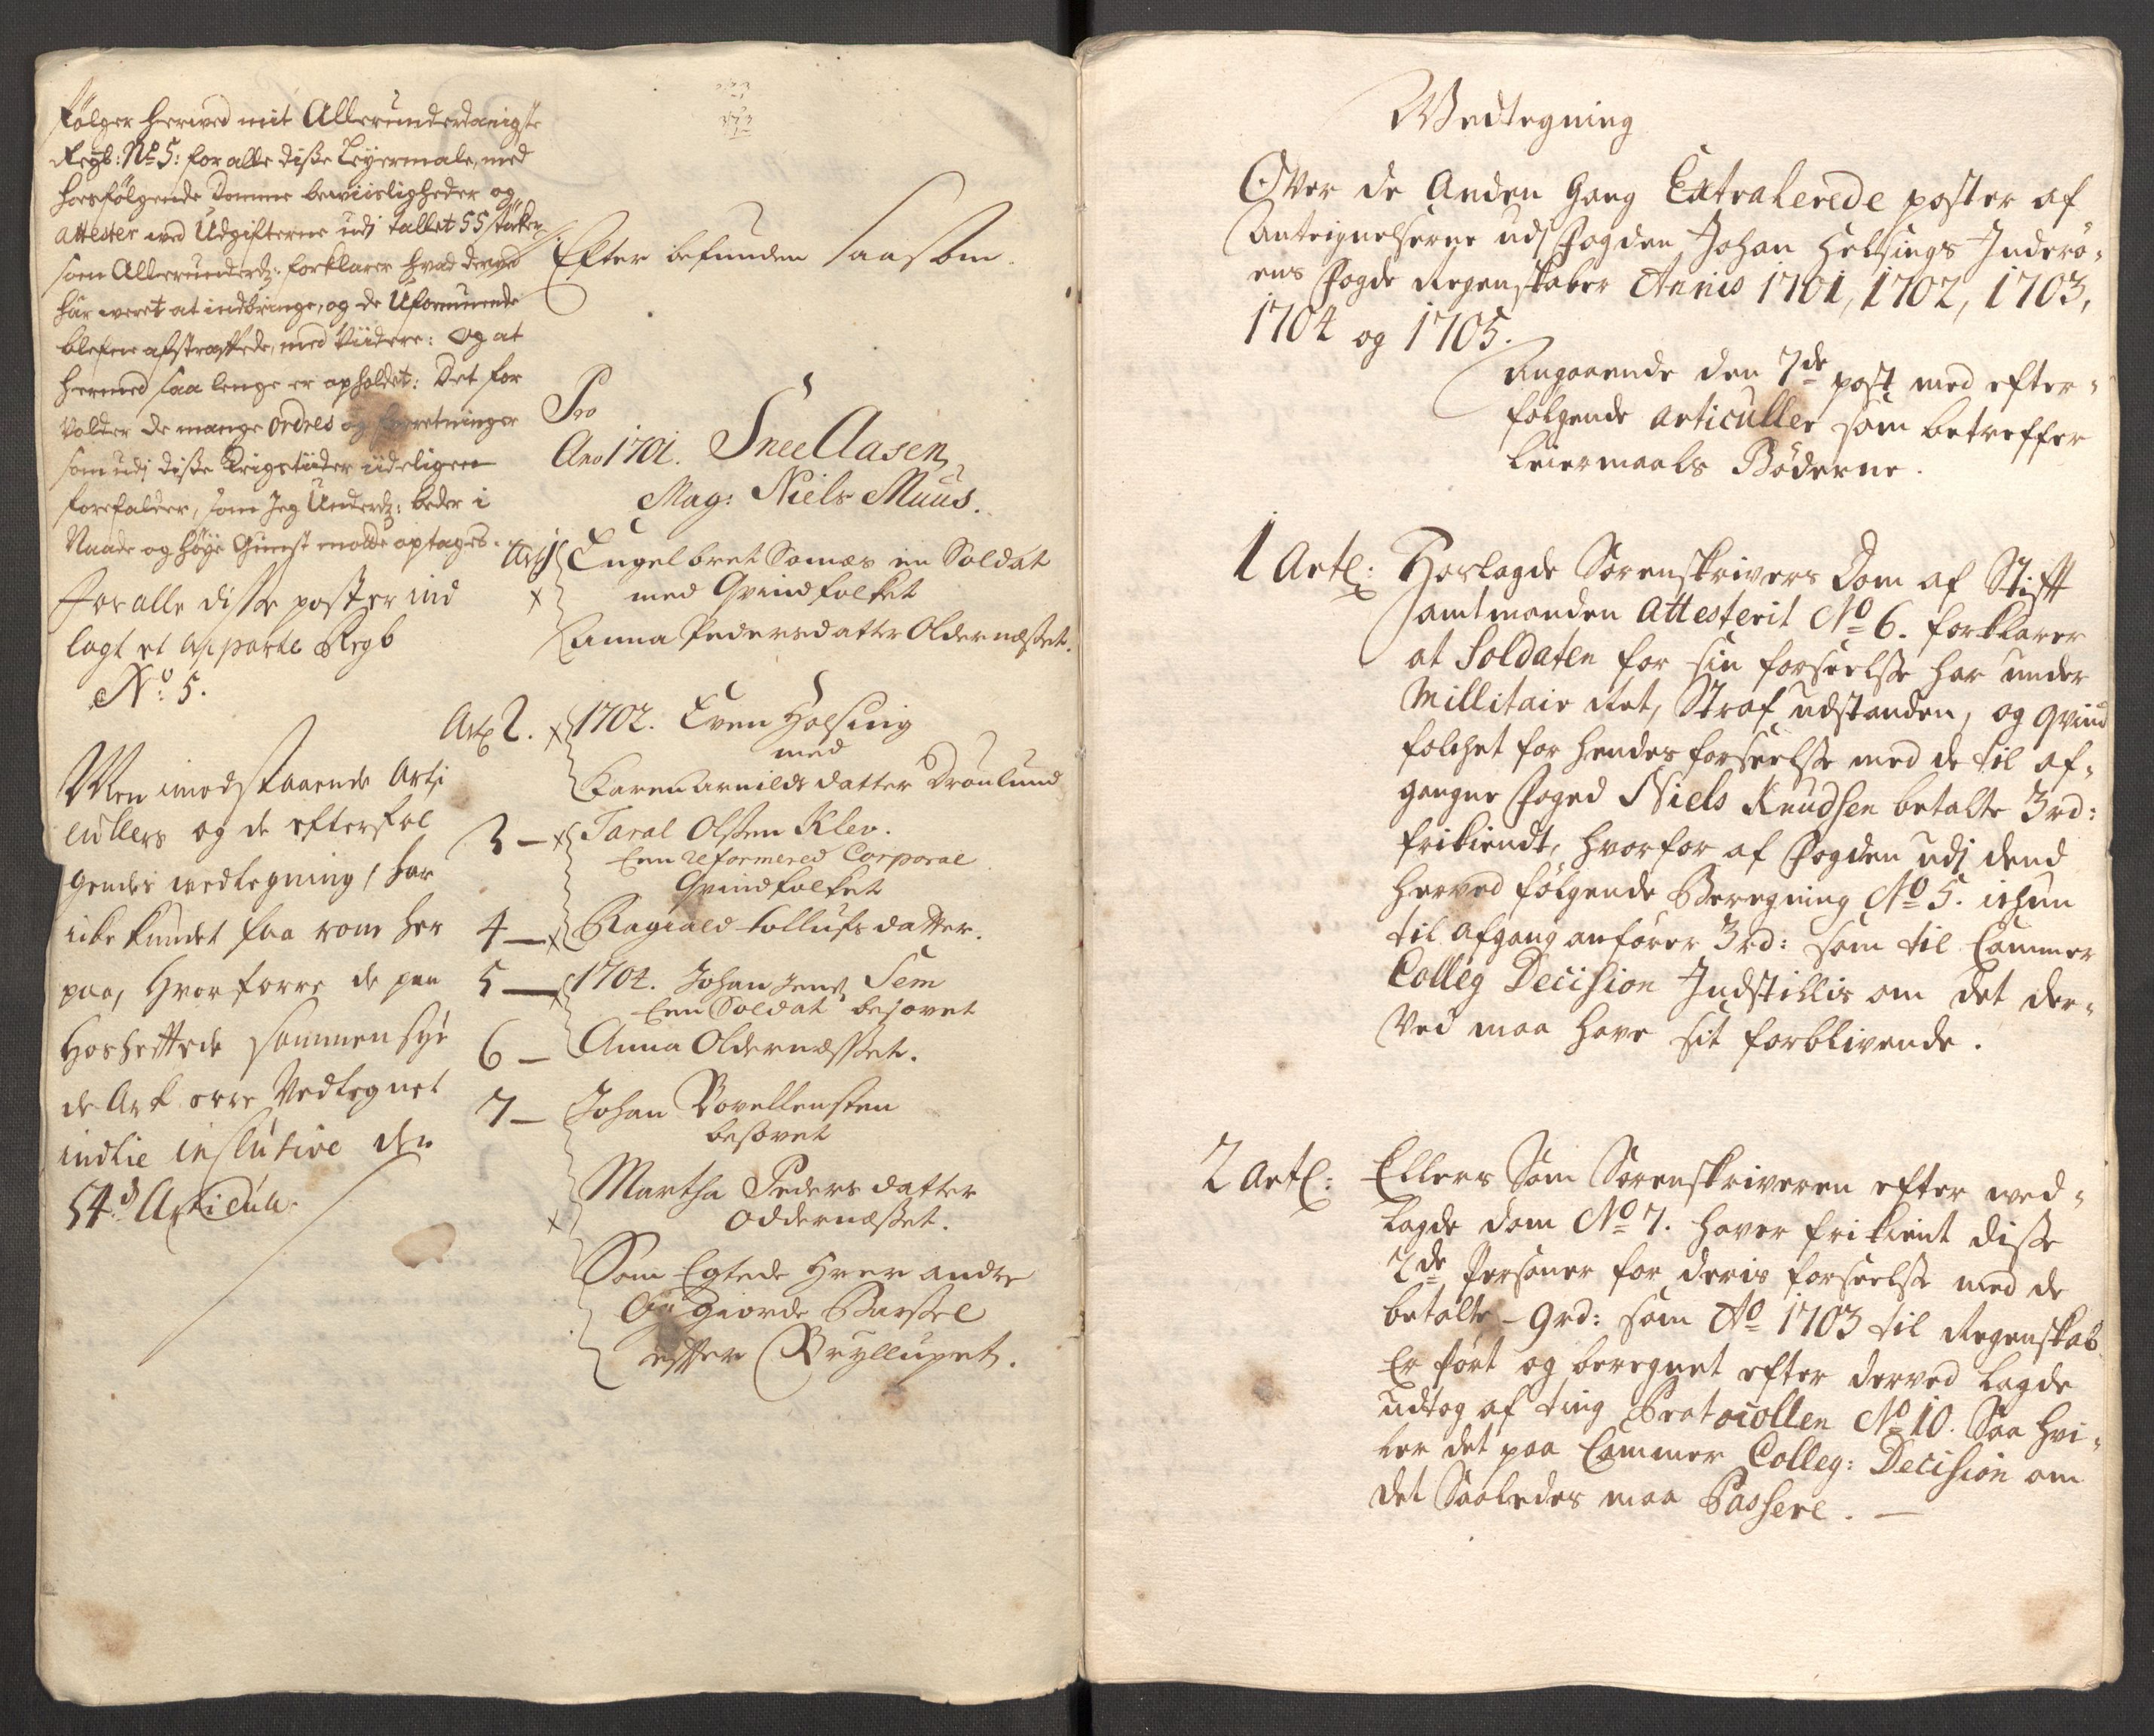 Følger herved mit Allerunderdanigste
Regb: No 5: for alle disse Leyermale, med
hosfølgende Domme beviisligheder og
attester ved Udgifterne udj tallet 55 støcker
som Allerunderdg: forklarer hvad derved
har veret at indbringe, og de Uformuende
blefne afstraffede, med Viidere: Og at
hermed saa lenge er opholdet: Det for
Volder de mange Ordres og forretninger
som udj disse Krigstiider iideligen
forefalder, som Jeg Underdg: beder i
Naade og høye Gunst motte optages.
For alle disse poster ind
lagt et Apparte Regb
No: 5.
Men imodstaaende Arti
cullers og de efterføl
gendes vedtegning, har
icke kundet faa rom her
paa, Hvorforre de paa
Hosheftede sammensye
de Ark ere Vedtegnet
indtil inslutive den
54d Articul.
Efter befunden saasom.
Pro
Ano 1701. Snee Aasen
Mag: Niels Muus.
Art 1 Engelbret Somæs en Soldat
x med Qvindfolket
Anna Pedersdatter Oldernæsset.
Art 2. x 1702. Even Hølsing
med
Karen Arnildsdatter Drønlund
3 - x Taral Olsen Klev.
Een reformered Corporal
Qvindfolket
4 - x Ragield Tollufsdatter.
5 - x 1704. Johan Jens: Sem
Een Soldat besovet
6 - Anna Oldernæsset.
7 - Johan Bovellensten
besovet
Martha Pedersdatter
x Oddernæsset.
Som Egtede Hver andre
Og giorde Barsel
efter Bryllupet.
Vedtegning
Over de Anden Gang Extraherede poster af
Anteignelserne udj Fogden Johan Helsings Inderø-
ens Fogde Regenskaber Annis 1701, 1702, 1703,
1704 og 1705.
Angaaende den 7de post med efter-
følgende articuller som betreffer
Leiermaals Bøderne.
1 Artl: Hoslagde Sorenskrivers Dom af Stift
amtmanden Attesterit No 6. forklarer
at Soldaten for sin forseelse har under
Millitair Ret, Straf udstanden, og qvind
folchet for hendes forseelse med de til af-
gangne Foged Niels Knudsen betalte 3rd:
frikiendt, hvorfor af Fogden udj dend
herved følgende Beregning No 5. ichun
til afgang anfører 3rd: som til Cammer
Colleg Decision Indstillis om det der-
Ved maa have sit forblivende.
2 Artl: Ellers Som Sorenskriveren efter ved-
lagde dom No 7. haver frikient disse
2de Personer for deris forseelse med de
betalte - 9rd: som Ao 1703 til Regenskab
Er ført og beregnet efter derved lagde
udtog af ting Protocollen No 10. Saa hvi-
ler det paa Cammer Colleg: Decision om
det Saaledes maa Passere. -